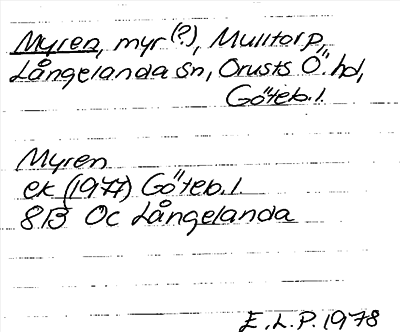 Myren, myr (?), Mulltorp,
Långelanda sn, Orusts Ö. hd,
Göteb. l.
Myren
ek (1977) Göteb. l.
8B 0c Långelanda
E.L.P. 1978